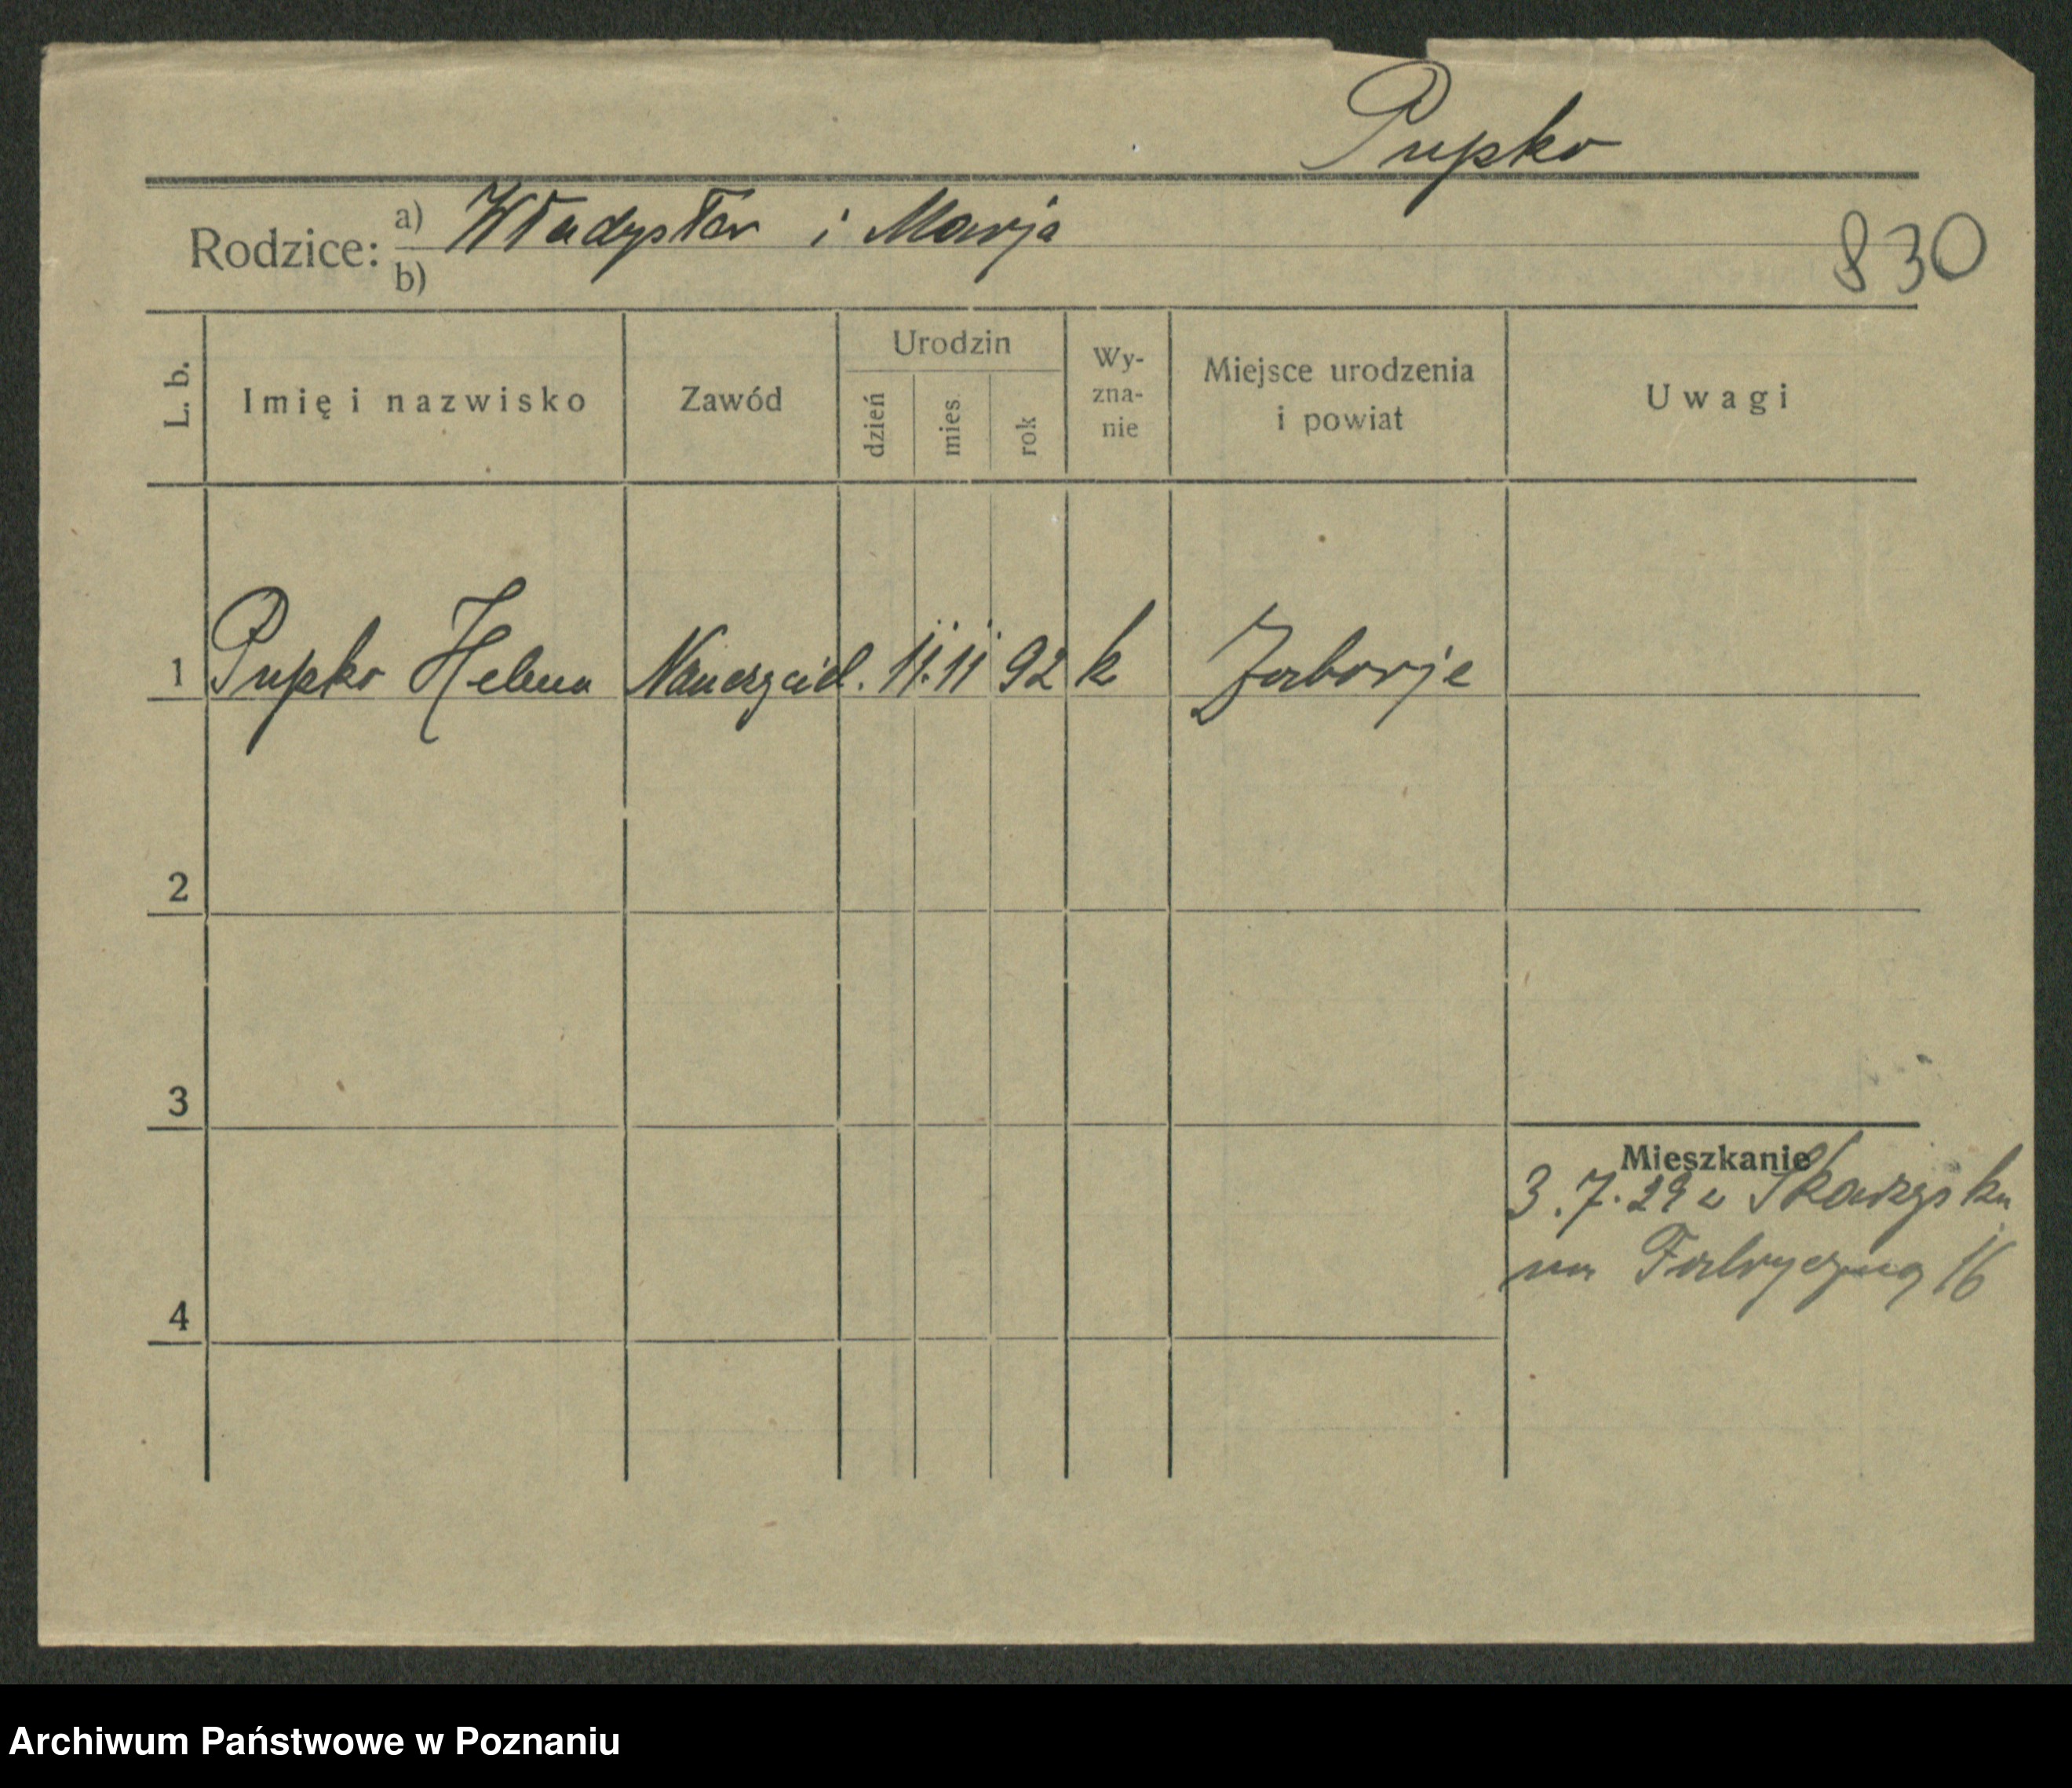 Pupko
Rodzice: a) Władysław i Marja
b)
830
L. b.
Imię i nazwisko
Zawód
Urodzin
dzień
mies.
rok
Wy-
zna-
nie
Miejsce urodzenia
i powiat
Uwagi
1 Pupko Helena Nauczyciel. 11. 11 92 k Zaborje
2
3
Mieszkanie
3.7.29 z Skarzyska
na Fabryczną 16
4
Archiwum Państwowe w Poznaniu